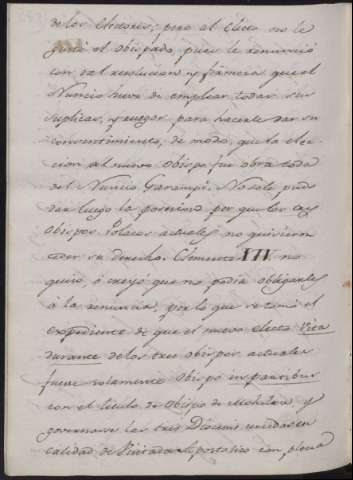 de los Electores; pero al Electo no le
gustó el Obispado, pues le renunció
con tal resolucion y firmeza que el
Nuncio huvo de emplear todas sus
suplicas, y ruegos para hacerle dar su
consentimiento; de modo, que la elec-
cion del nuevo Obispo fue obra toda
del Nuncio Garampi. No sele pudo
dar luego la posesion por que los tres
Obispos Polacos actuales no quisieron
ceder su derecho. Clemente XIII no
quiso ó creyó que no podia obligarles
à la renuncia, por lo que se tomó el
expediente de que el nuevo electo Vita
durante de los tres obispos actuales
fuese solamente Obispo in partibus
con el titulo de Obispo de y
governase las tres Diocesis unidas en
calidad de Apostolico con plena